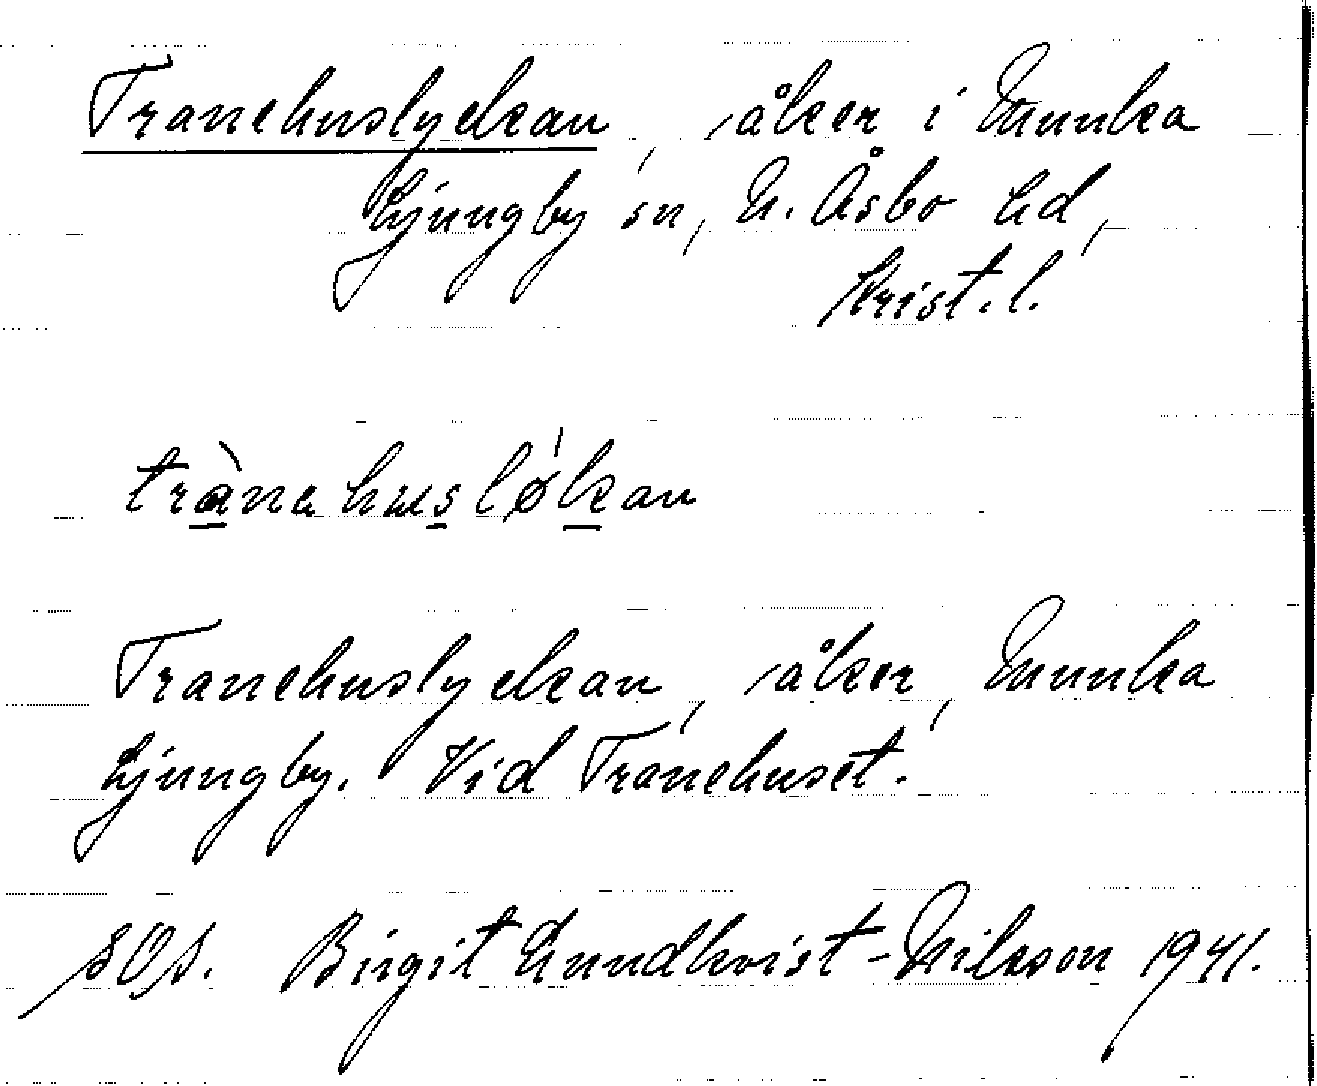 Tranehuslyckan, åker i Munka
Ljungby sn, N. Åsbo hd,
Krist. l.
trànehusløkan
Tranehuslyckan, åker, Munka
Ljungby. Vid Tranehuset.
SOS. Birgit Lundkvist-Nilsson 1941.